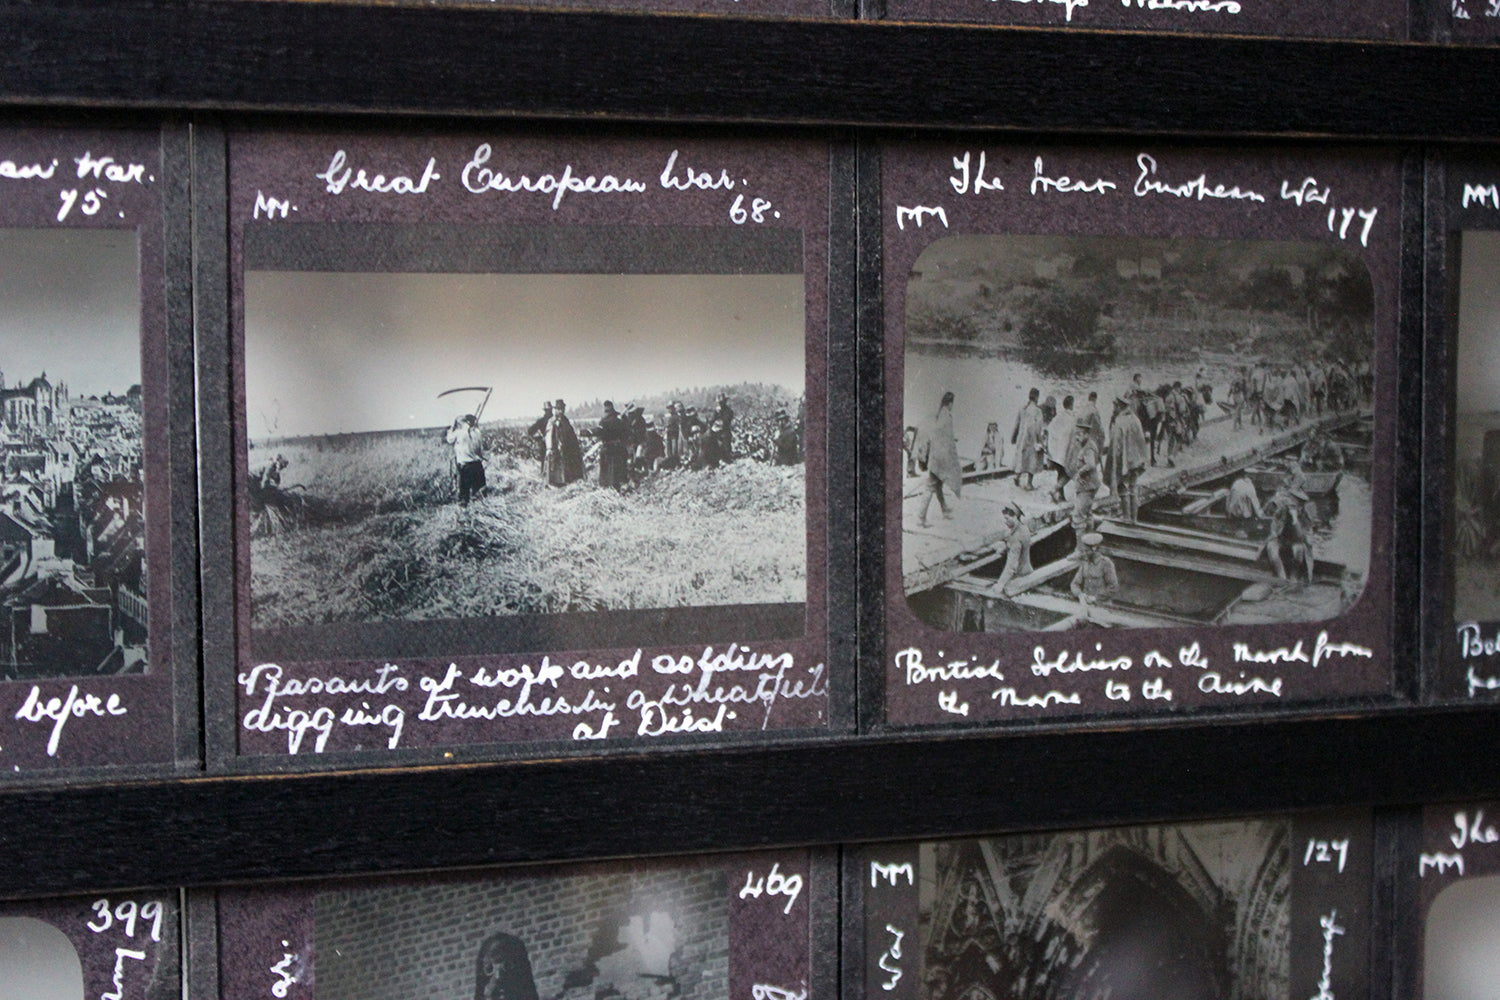 Weavers
War.
75.
before
Great European War.
MM. 68.
Peasants at work and soldiers
digging trenches in a wheatfield
at Diest
The Great European War
MM 177
British Soldiers on the March from
the Marne to the Aisne
MM
399
469
MM 127
The
MM